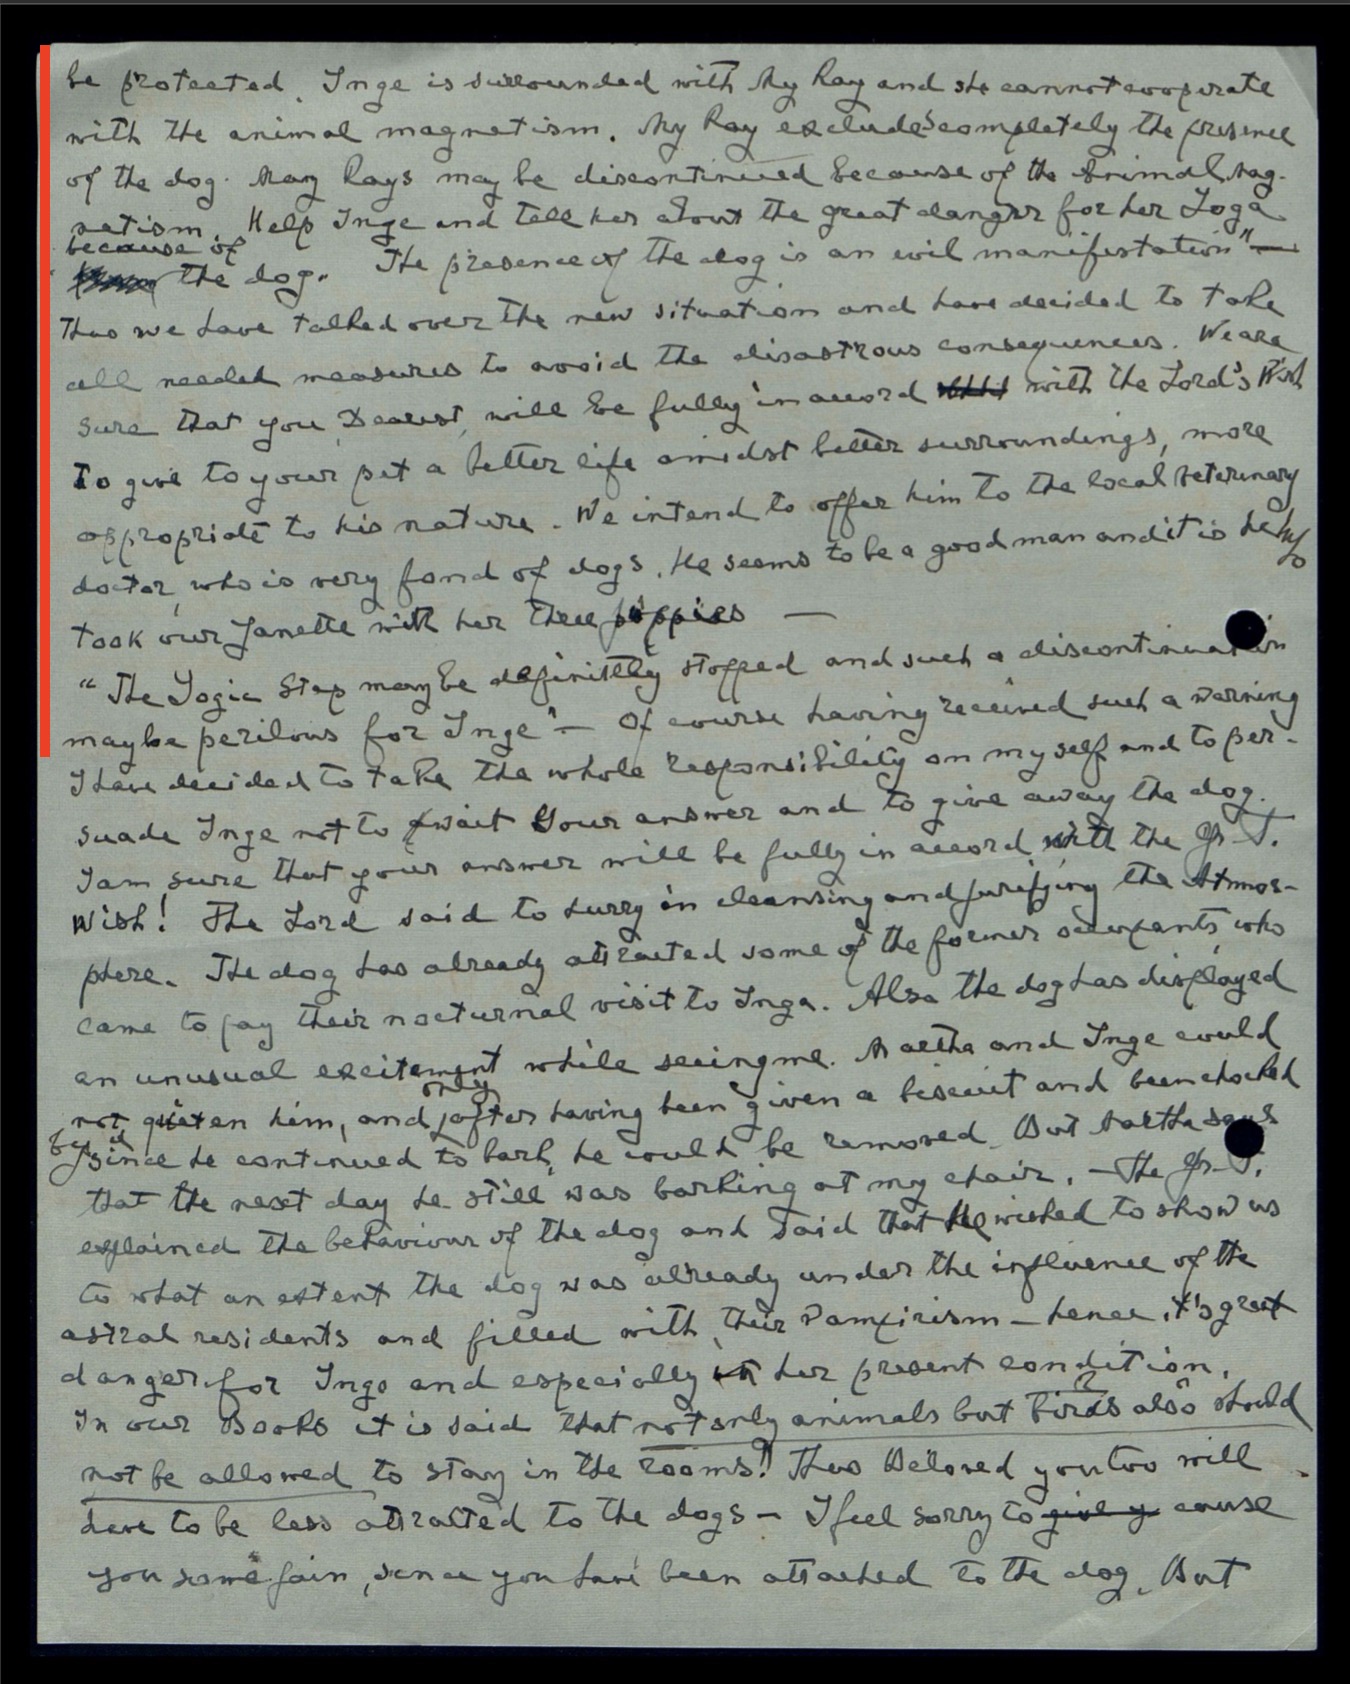 be protected. Inge is surrounded with My Ray and she cannot cooperate
with the animal magnetism. My Ray excludes completely the presence
of the dog. Many Rays may be discontinued because of the Animal Mag-
netism. Help Inge and tell her about the great danger for her Yoga
because of
the dog. The presence of the dog is an evil manifestation" —
Thus we have talked over the new situation and have decided to take
all needed measures to avoid the disastrous consequences. We are
sure that you, Dearest, will be fully in accord with the Lord's Wish
To give to your pet a better life amidst better surroundings, more
appropriate to his nature. We intend to offer him to the local veterinary
doctor, who is very fond of dogs. He seems to be a good man and it is he who
took our Janette with her three puppies —
"The Yogic Step may be definitely stopped and such a discontinuation
maybe perilous for Inge" — Of course having received such a warning
I have decided to take the whole responsibility on myself and to per-
suade Inge not to await Your answer and to give away the dog.
I am sure that your answer will be fully in accord with the Gr. T.
Wish! The Lord said to hurry in cleansing and purifying the Atmos-
phere. The dog has already attracted some of the former servants, who
came to pay their nocturnal visit to Inge. Also the dog has displayed
an unusual excitement while seeing me. Martha and Inge could
not quieten him, and only after having been given a biscuit and been choked
by it since he continued to bark, he could be removed. But Martha says
that the next day he still was barking at my chair. — The Gr. T.
explained the behaviour of the dog and said that He wished to show us
to what an extent the dog was already under the influence of the
astral residents and filled with their vampirism — hence it's great
danger for Inge and especially in her present condition.
In our Books it is said that not only animals but birds also should
not be allowed to stay in the rooms! Thus Beloved you two will
have to be less attracted to the dogs — I feel sorry to give y cause
you some pain, since you have been attached to the dog. But